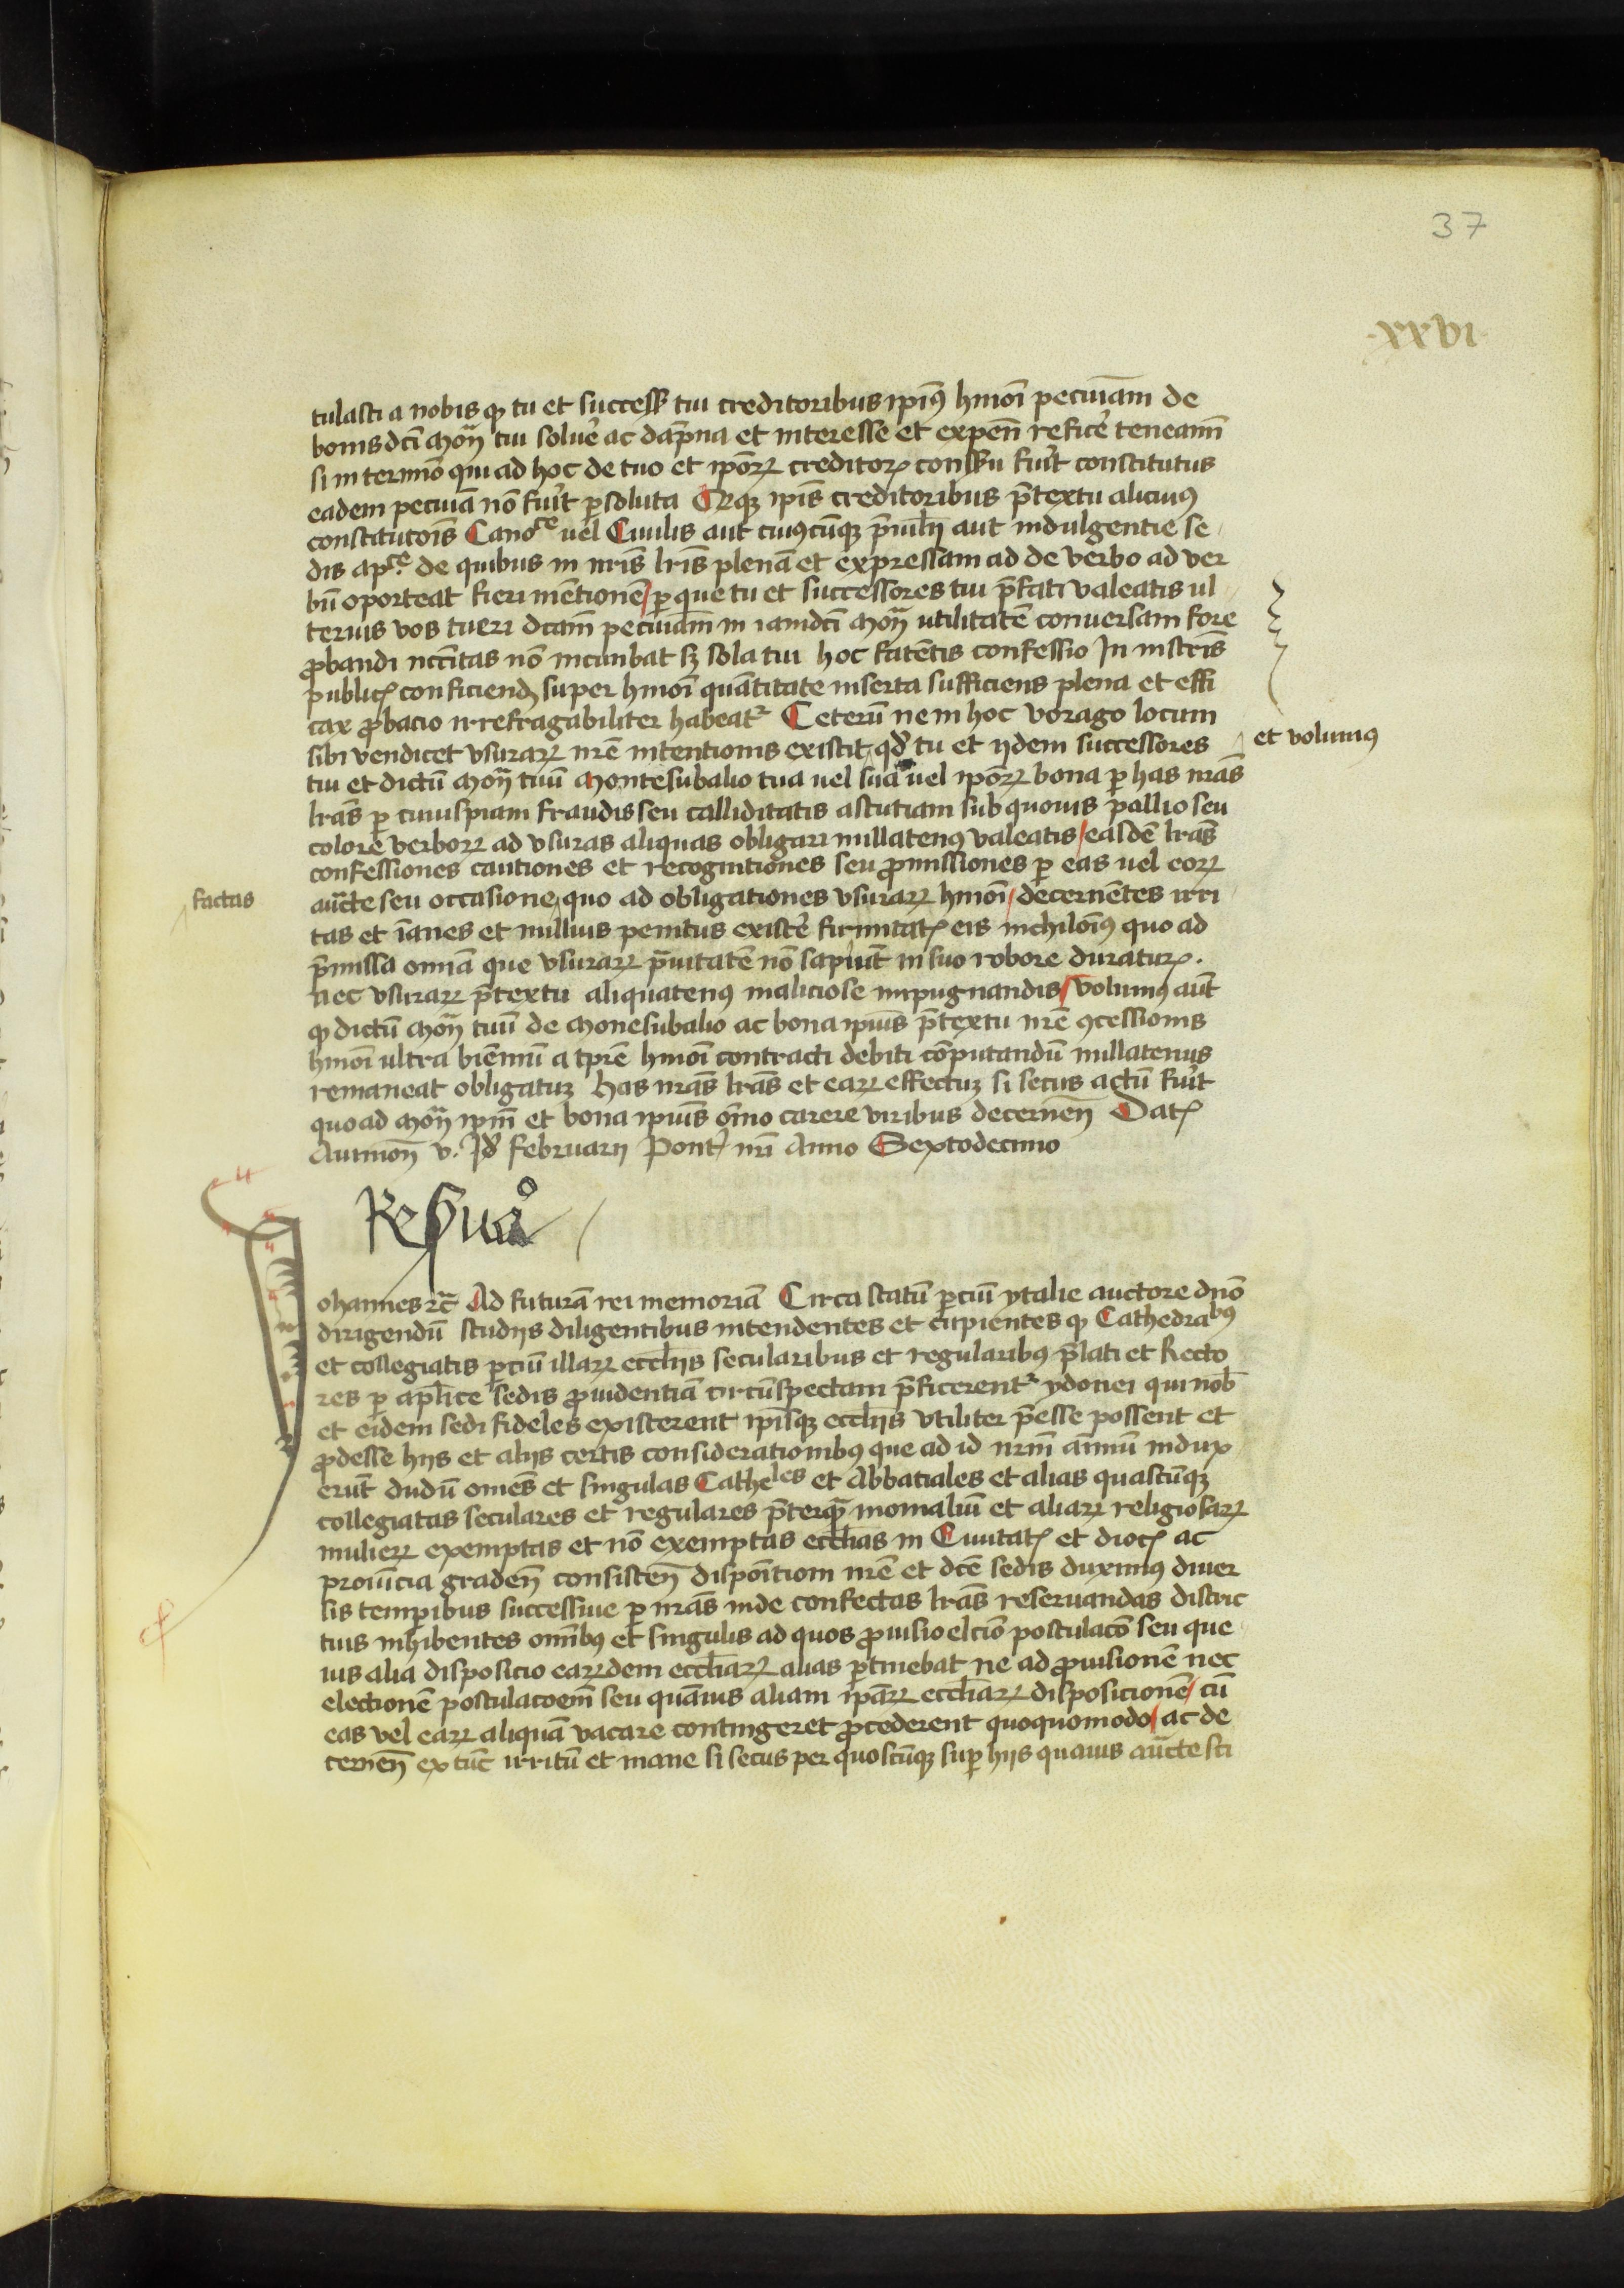 37
xxvi
tulasti a nobis ꝙ tu et success̃ tui creditoribus ipiꝰ hmoi pecuiam de
bonis dci moñ tui soluẽ ac dapna et interesse et expeñ reficẽ teneamĩ
si in termiõ qui ad hoc de tuo et ipoꝝ creditoꝝ conss̃u fuit constitutus
eadem pecuiã nõ fuit ꝑsoluta Qꝫ ipis creditoribus p̃textu alicuiꝰ
constitutois̃ Canoce uel Ciuilis aut cuiꝰcũqꝫ p̃uilh̃ij aut indulgentie se
dis apce de quibus in nris̃ lris̃ plenã et expressam ad de verbo ad ver
bũ oporteat fieri mẽtionẽ/ ꝑ que tu et successores tui p̃fati valeatis ul
terius vos tueri dcam̃ pecuiam̃ in iamdci moñ utilitatẽ conuersam fore
ꝓbandi nccitas nõ incunbat sꝫ sola tui hoc fatẽtis confessio In instris̃
publicꝭ conficiendꝭ super hmoi quãtitate inserta sufficiens plena et effi
cax ꝓbacio irrefragabiliter habeatᷣ Ceterũ ne in hoc vorago locum
sibi vendicet vsuraꝝ nrẽ intentionis existit qd̃ tu et ijdem successores
et volumꝰ
tui et dictũ moñ tuũ montesubalio tua uel sua uel ipoꝝ bona ꝑ has nras̃
lras̃ ꝑ cuiuspiam fraudis seu calliditatis astutiam sub quouis pallio seu
colore verboꝝ ad vsuras aliquas obligari nullatenꝰ valeatis/ easdẽ lras̃
confessiones cautiones et recognitiones seu ꝓmissiones ꝑ eas uel eoꝝ
factas
auc̃te seu occasione quo ad obligationes vsuraꝝ hmoi/ decernẽtes irri
tas et ĩanes et nullius penitus existẽ firmitatꝭ eis nichiloĩꝰ quo ad
p̃missa omiã que vsuraꝝ p̃uitatẽ nõ sapiũt in suo robore duraturꝭ.
nec vsuraꝝ p̃textu aliquatenꝰ maliciose impugnandis/ volumꝰ aut̃
ꝙ dictũ moñ tuũ de monesubalio ac bona ipius̃ p̃textu nrẽ ꝯcessionis
hmoi ultra biẽniũ a tprẽ hmoi contracti debiti cõputandũ nullatenus
remaneat obligatuꝫ has nras̃ lras̃ et eaꝝ effectuꝫ si secus actũ fuit̃
quo ad moñ ipm̃ et bona ipius̃ om̃o carere viribus decerneñ Datꝭ
Auinioñ v. Id̃ februarij Pont̃ nri Anno Sextodecimo
Iohannes ⁊c̃ Ad futurã rei memoriã Circa statũ ꝑciũ ytalie auctore dño
dirigendũ studijs diligentibus intendentes et cupientes ꝙ Cathedrabꝰ
et collegiatis ꝑciũ illaꝝ eccl̃ijs secularibus et regularibꝰ p̃lati et Recto
res ꝑ apl̃ice sedis ꝓuidentiã circũspectam p̃ficerentᷣ ydonei qui nob̃
et eidem sedi fideles existerent ipisqꝫ eccl̃ijs vtiliter p̃esse possent et
ꝓdesse hijs et alijs certis considerationibꝰ que ad id nrm̃ aĩmũ indux
erũt dudũ omes̃ et singulas Catheles et Abbatiales et alias quascũqꝫ
collegiatas seculares et regulares p̃terqꝫ monialiũ et aliaꝝ religiosaꝝ
mulieꝝ exemptas et nõ exemptas eccl̃ias in Ciuitatꝭ et diocꝭ ac
prouĩcia gradeñ consisteñ dispoĩtiom nrẽ et dcẽ sedis duximꝰ diuer
sis tempibus successiue ꝑ nras̃ inde confectas lras̃ reseruandas distric
tius inhibentes omĩbꝰ et singulis ad quos ꝓuisio elciõ postulacõ seu que
uis alia disposicio eaꝝdem eccl̃iaꝝ alias ꝑtinebat ne ad ꝓuisionẽ nec
electionẽ postulacoem̃ seu quãuis aliam ipaꝝ eccl̃iaꝝ disposicionẽ/ cũ
eas vel eaꝝ aliquã vacare contingeret ꝓcederent quoquomodo/ ac de
cerneñ ex tũc irritũ et inane si secus per quoscũqꝫ suꝑ hijs quauis auc̃te sci